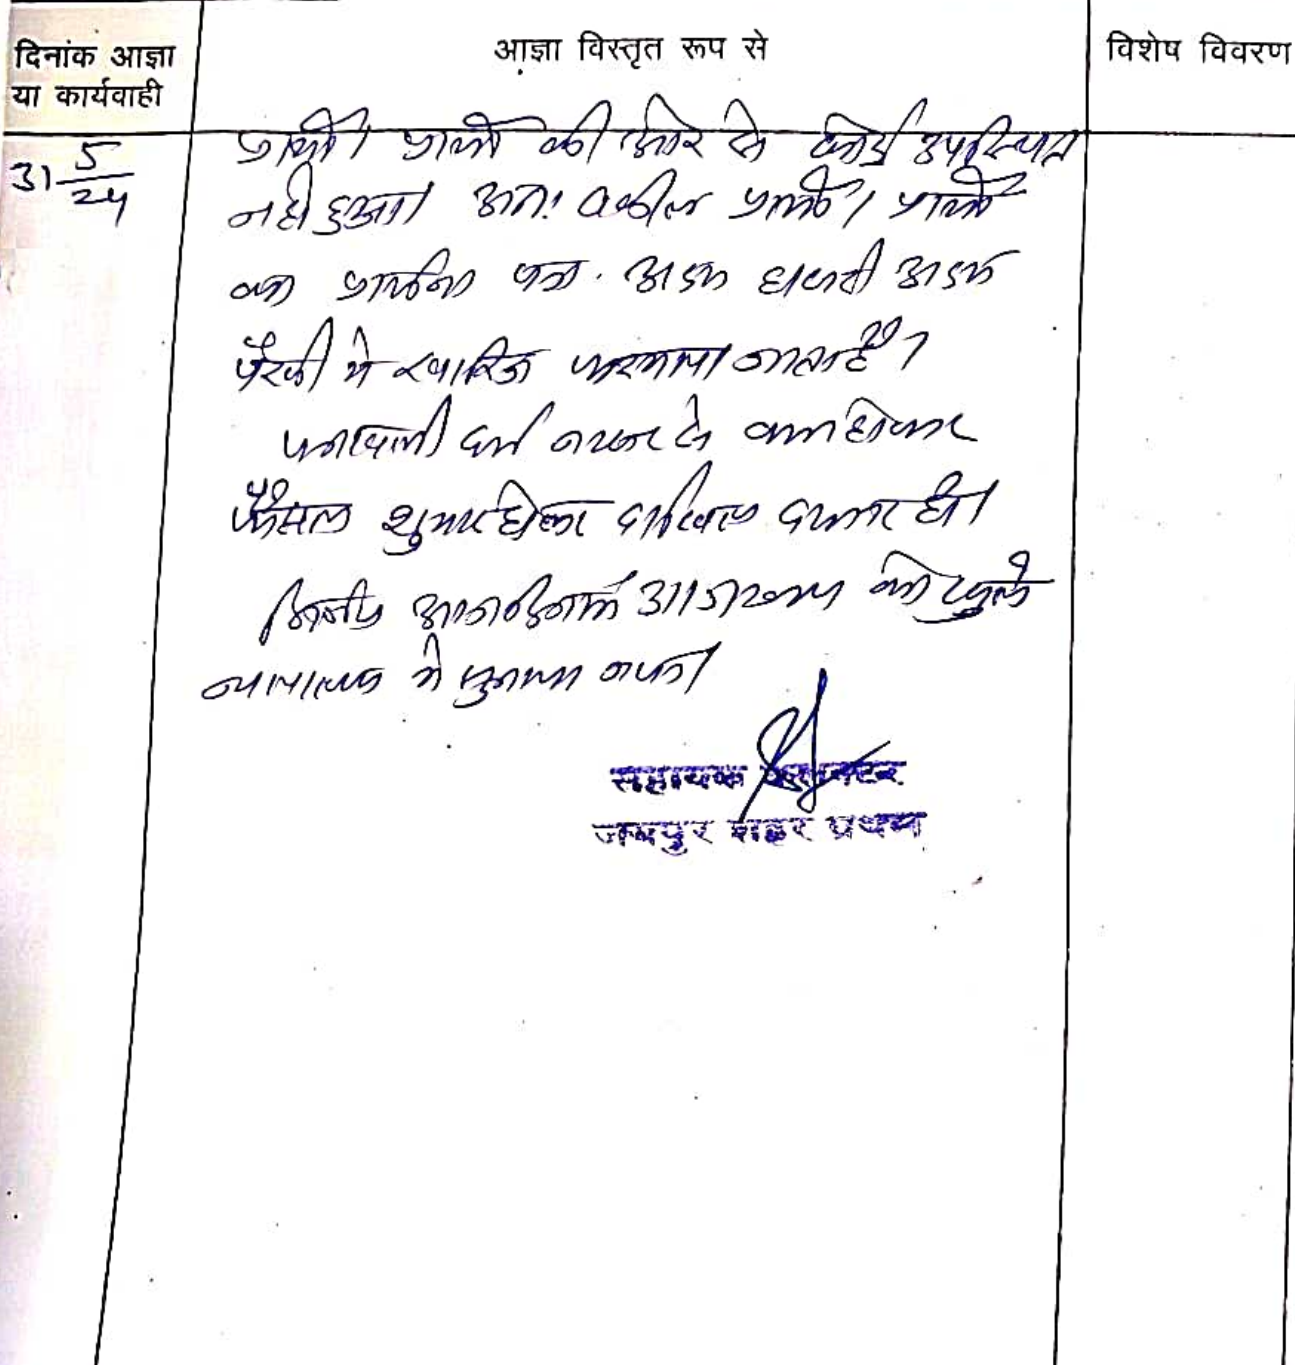 दिनांक आज्ञा
या कार्यवाही
आज्ञा विस्तृत रूप से
विशेष विवरण
31 5/24
प्रार्थी। प्रार्थी की ओर से कोई उपस्थित
नही हुआ। अतः वकील प्रार्थी। प्रार्थी
का प्रार्थना पत्र अदम हाजरी अदम
पैरवी मे खारिज फरमाया जाता है।
पत्रावली दर्ज नम्बर से कम होकर
फैसल शुमार होकर दाखिल दफ्तर हो।
निर्णय आज दिनांक को खुले
न्यायालय मे सुनाया गया।
सहायक कलक्टर
जयपुर शहर प्रथम